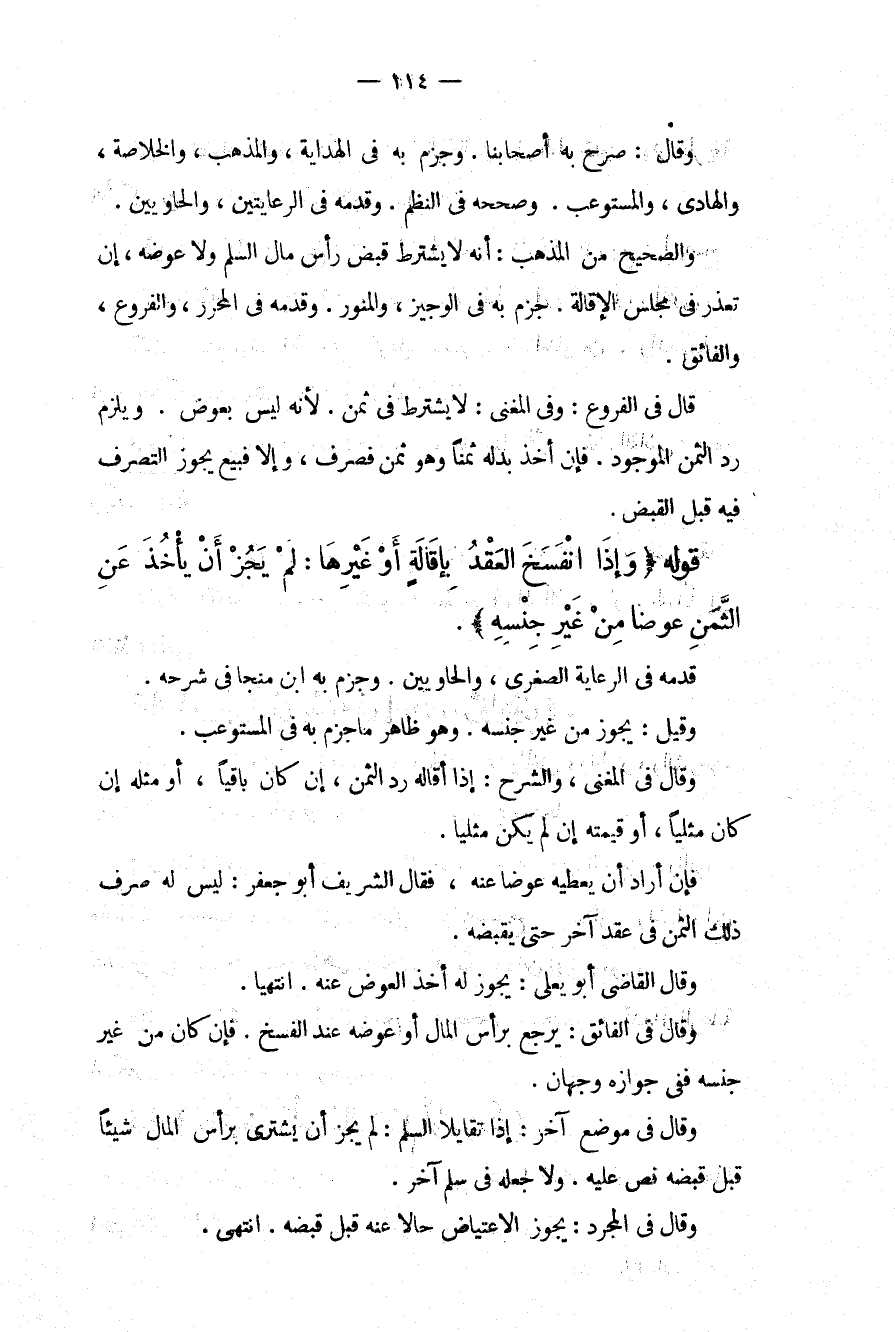 — ١١٤ —
وقال : صرح به أصحابنا . وجزم به فى الهداية ، والمذهب ، والخلاصة ،
والهادى ، والمستوعب . وصححه فى النظم . وقدمه فى الرعايتين ، والحاويين .
والصحيح من المذهب : أنه لايشترط قبض رأس مال السلم ولا عوضه ، إن
تعذر فى مجلس الإقالة . جزم به فى الوجيز ، والمنور . وقدمه فى المحرر ، والفروع ،
والفائق .
قال فى الفروع : وفى المغنى : لايشترط فى ثمن . لأنه ليس بعوض . ويلزم
رد الثمن الموجود . فإن أخذ بدله ثمناً وهو ثمن فصرف ، وإلا فبيع يجوز التصرف
فيه قبل القبض .
قوله ﴿ وَإِذَا انْفَسَخَ العَقْدُ بِإقَالَةٍ أَوْ غَيْرِهَا : لَمْ يَجُزْ أَنْ يأْخُذَ عَنِ
الثَّمَنِ عوضا مِنْ غَيْرِ جِنْسِهِ ﴾ .
قدمه فى الرعاية الصغرى ، والحاويين . وجزم به ابن منجا فى شرحه .
وقيل : يجوز من غير جنسه . وهو ظاهر ماجزم به فى المستوعب .
وقال فى المغنى ، والشرح : إذا أقاله رد الثمن ، إن كان باقياً ، أو مثله إن
كان مثلياً ، أو قيمته إن لم يكن مثليا .
فإن أراد أن يعطيه عوضا عنه ، فقال الشريف أبو جعفر : ليس له صرف
ذلك الثمن فى عقد آخر حتى يقبضه .
وقال القاضى أبو يعلى : يجوز له أخذ العوض عنه . انتهيا .
وقال فى الفائق : يرجع برأس المال أو عوضه عند الفسخ . فإن كان من غير
جنسه ففى جوازه وجهان .
وقال فى موضع آخر : إذا تقايلا السلم : لم يجز أن يشترى برأس المال شيئاً
قبل قبضه نص عليه . ولا جعله فى سلم آخر .
وقال فى المجرد : يجوز الاعتياض حالا عنه قبل قبضه . انتهى .